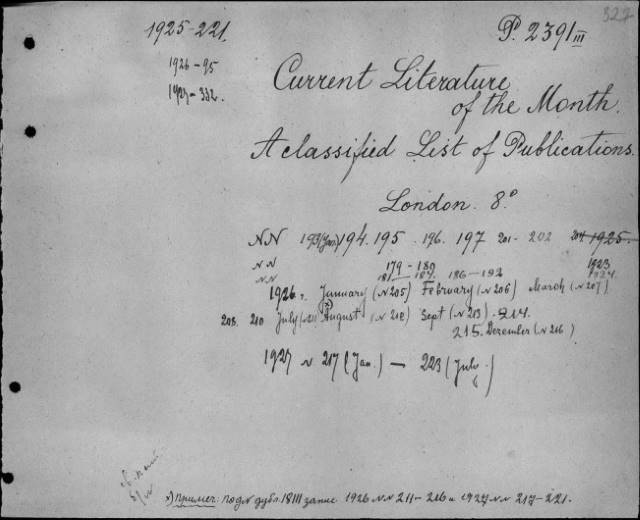 322
1925-221.
P. 239/III
1926-95
1927-332.
Current Literature
of the Month.
A classified List of Publications.
London. 8.º
NN 193(Jan.) 194. 195. 196. 197 201- 202 204. 1925.
NN 179-180 1923
NN 181-184. 186-192 1924.
1926. January (N205) February (N206) March (N207)
208. 210 July (N211) August (N212) Sept (N213). 214.
x)
215. Dezember (N216)
1927 N 217 (Jan.) — 223 (July)
x) Примеч: под N дубл. 18III запис 1926 NN 211-216 и 1927 NN 217-221.